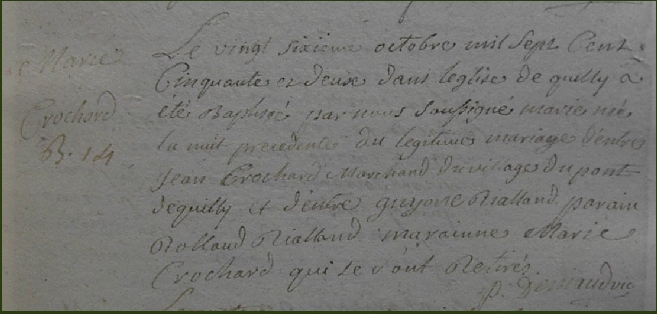 Marie
Crochard
B. 14
Le vingt sixieme octobre mil sept Cent
Cinquante et deux dans leglise de quilly a
été Baptisé par nous soussigné marie née
la nuit precedente du legitime mariage d'entre
Jean Crochard Marchand du village du pont
de quilly et d'entre guyone Rialland parain
Rolland Rialland marainne Marie
Crochard qui se sont Retirés